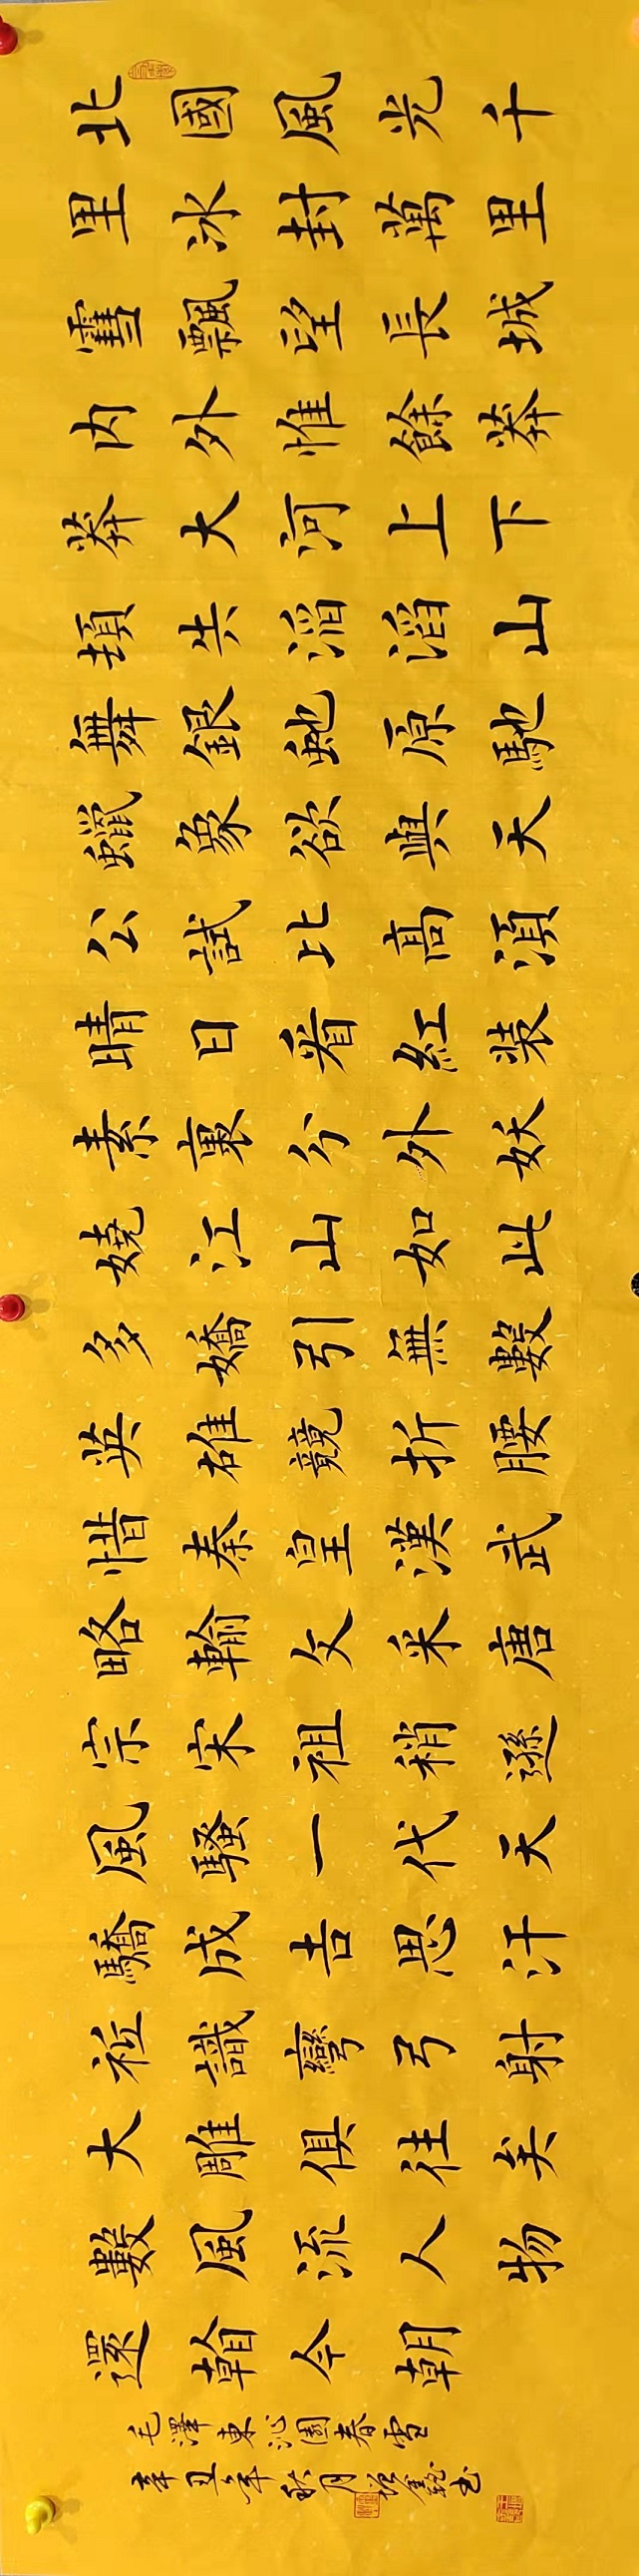 北國風光千
里冰封萬里
雪飄望長城
内外惟餘莽
莽大河上下
頓失滔滔山
舞銀虵原馳
蠟象欲與天
公試比高湏
晴日看紅装
素裹分外妖
嬈江山如此
多嬌引無數
英雄競折腰
惜秦皇漢武
略輸文采唐
宗宋祖稍遜
風騷一代天
驕成吉思汗
祗識彎弓射
大雕俱往矣
數風流人物
還看今朝
毛澤東沁園春雪
辛丑年秋月書